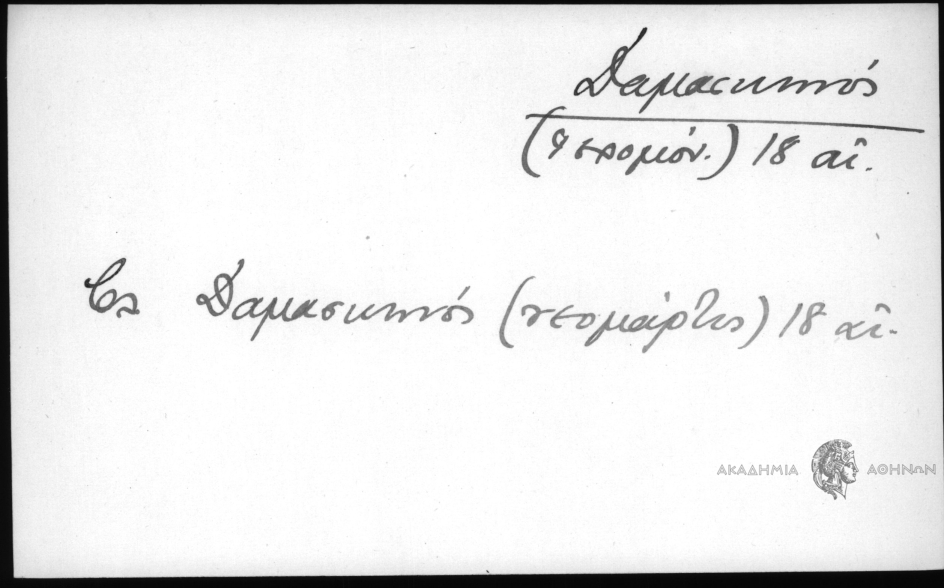 Δαμασκηνός
(Ἱερομόν.) 18 αἰ.
βλ Δαμασκηνός (νεομάρτυς) 18 αἰ.
ΑΚΑΔΗΜΙΑ ΑΘΗΝΩΝ